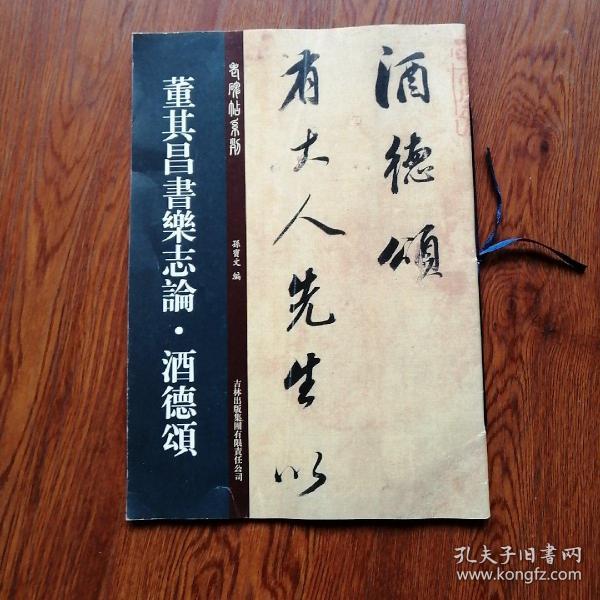 酒德頌
有大人先生以
老碑帖系列
孫寶文 編
吉林出版集團有限責任公司
董其昌書樂志論·酒德頌
孔夫子旧书网
www.kongfz.com